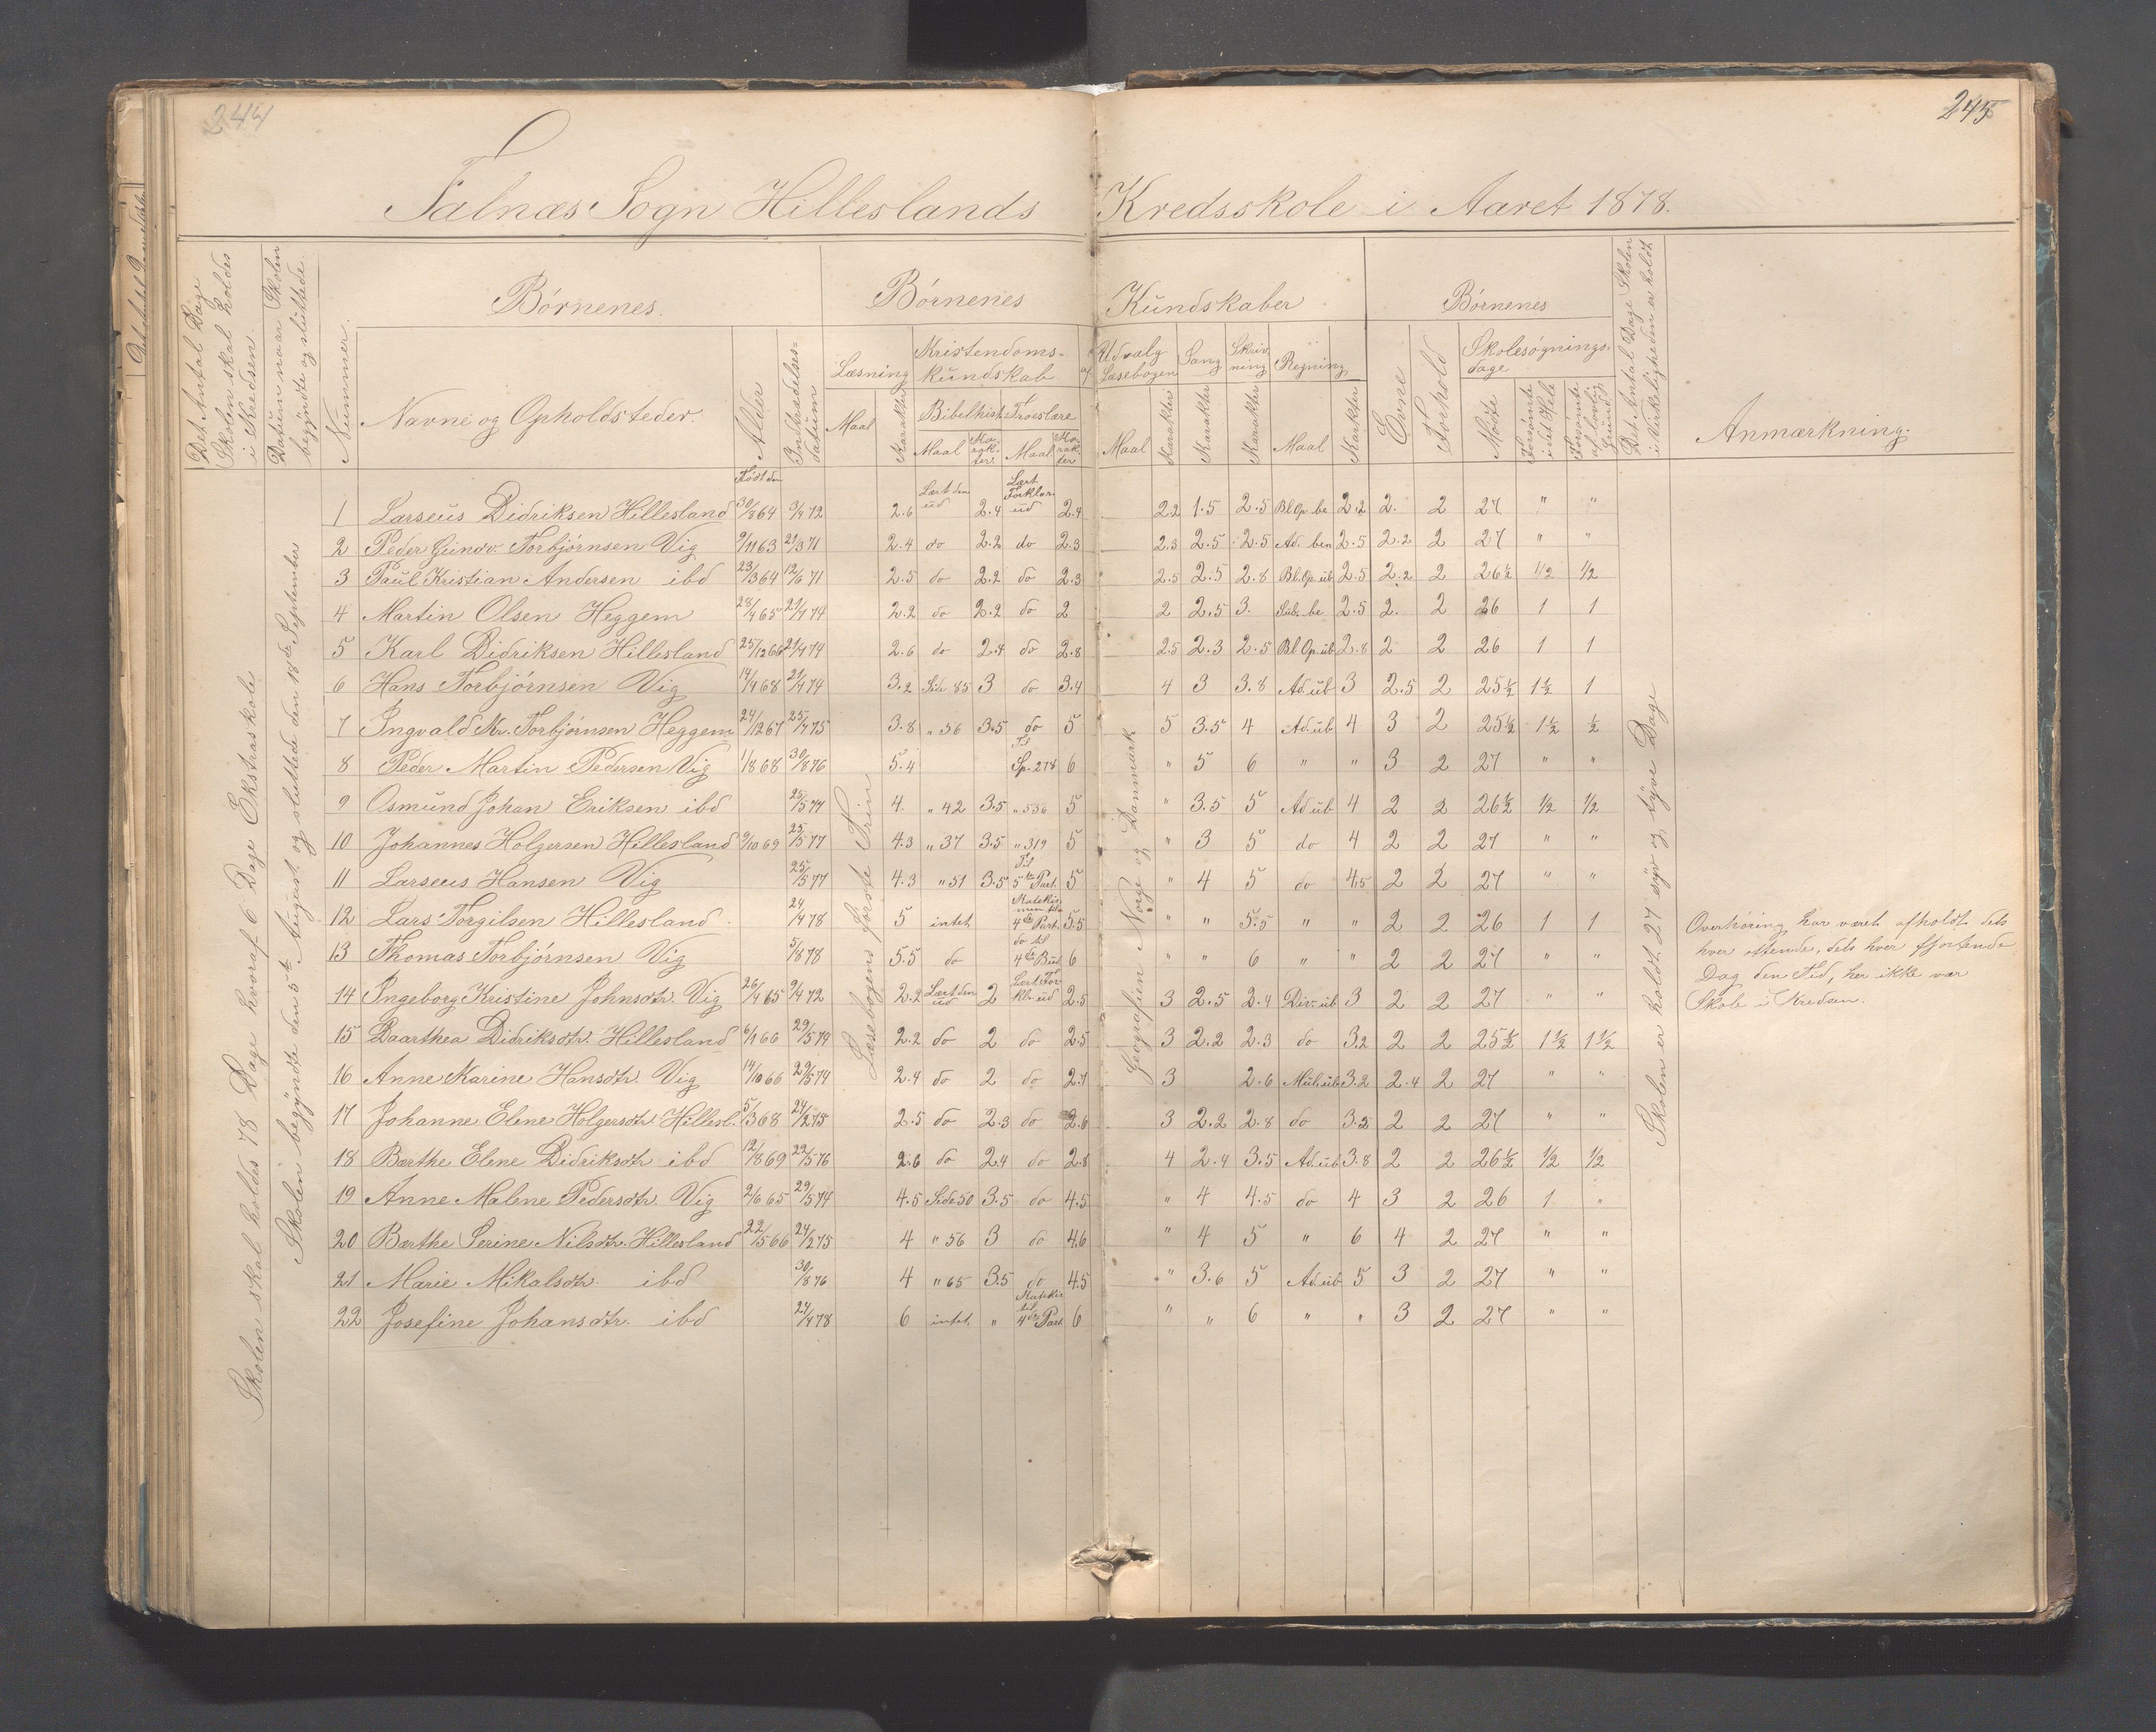 244
245
Falnæs Sogn Hilleslands Kredsskole i Aaret 1878.
Det Antal Dage Skolen skal holdes i Kredsen.
Datum naar Skolen begyndte og sluttede.
Nummer.
Børnenes.
Navne og Opholdsteder.
Alder
Indtrædelsesdatum
Børnenes Kundskaber
Læsning
Maal Karakter
Kristendomskundskab.
Bibelhist. Troeslære
Maal Karakter. Maal Karakter
Udvalg af Læsebogen
Maal Karakter
Sang Karakter
Skrivning Karakter
Regning
Maal Karakter
Børnenes
Evne
Forhold
Skolesøgningsdage
Mødte
Forsømte i det Hele
Forsømte af lovlig Grund
Det Antal Dage Skolen i Virkeligheden er holdt
Anmærkning.
Skolen skal holdes 78 Dage hvoraf 6 Dage Ekstraskole
Skolen begyndte den 5te August og sluttede den 18de September
Læsebogens første Trin
Geografien Norge og Danmark
Skolen er holdt 27 syv og tyve Dage
Født den
1 Larseus Didriksen Hillesland 30/8 64 9/4 72 2.6 Lært den ud 2.4 Lært Forklar. ud 2.4 2.2 1.5 2.5 Bl Op. be 2.2 2. 2 27 " "
2 Peder Gundv. Torbjørnsen Vig 9/11 63 21/3 71 2.4 do 2.2 do 2.3 2.3 2.5 2.5 Ad. ben 2.5 2.2 2 27 " "
3 Paul Kristian Andersen ibd 23/3 64 12/6 71 2.5 do 2.2 do 2.3 2.5 2.5 2.8 Bl. Op. üb 2.5 2.2 2 26½ 1/2 1/2
4 Martin Olsen Heggem 28/4 65 21/4 74 2.2 do 2.2 do 2 2 2.5 3. Sub. be 2.5 2. 2 26 1 1
5 Karl Didriksen Hillesland 25/12 66 21/4 74 2.6 do 2.4 do 2.8 2.5 2.3 2.5 Bl Op. üb 2.8 2 2 26 1 1
6 Hans Torbjørnsen Vig 14/4 68 21/4 74 3.2 Side 85 3 do 3.4 4 3 3.8 Ad. üb 3 2.5 2 25½ 1½ 1
7 Ingvald Kr. Torbjørnsen Heggem 24/12 67 25/4 75 3.8 " 56 3.5 do 5 5 3.5 4 Ad. üb 4 3 2 25½ 1½ ½
8 Peder Martin Pedersen Vig 1/8 68 30/8 76 5.4 Til Sp. 278 6 " 5 6 " " 3 2 27 " "
9 Osmund Johan Eriksen ibd 25/5 77 4. " 42 3.5 " 536 5 " 3.5 5 Ad üb 4 2 2 26½ 1/2 1/2
10 Johannes Holgersen Hillesland 9/10 69 25/5 77 4.3 " 37 3.5 " 319 5 " 3 5 do 4 2 2 27 " "
11 Larseus Hansen Vig 25/5 77 4.3 " 51 3.5 Til 5te Part. 5 " 4 5 do 4.5 2 2 27 " "
12 Lars Torgilsen Hillesland 24/4 78 5 intet 4de Part. 5.5 " " 5.5 " " 2 2 26 1 1
13 Thomas Torbjørnsen Vig 5/8 78 5.5 do do til 4de Bud 6 " " 6 " " 2 2 27 " "
14 Ingeborg Kristine Johnsdtr. Vig 26/4 65 9/4 72 2.2 Lært den ud 2 Lært Forkl. ud 2.5 3 2.5 2.4 Div. üb 3 2 2 27 " "
15 Baarthea Didriksdtr. Hillesland 6/1 66 29/5 74 2.2 do 2 do 2.5 3 2.2 2.3 do 3.2 2 2 25½ 1½ 1½
16 Anne Karine Hansdtr. Vig 14/10 66 29/5 74 2.4 do 2 do 2.7 3 2.6 Mul. üb 3.2 2.4 2 27 " "
17 Johanne Elene Holgersdtr. Hillesl. 5/3 68 24/2 75 2.5 do 2.3 do 2.6 3 2.2 2.8 do 3.2 2 2 27 " "
18 Barthe Elene Didriksdtr ibd 12/8 69 22/5 76 2.6 do 2.4 do 2.8 4 2.4 3.5 Ad. üb 3.8 2 2 26½ 1/2 1/2
19 Anne Malene Pedersdtr. Vig 2/6 65 29/5 74 4.5 Side 50 3.5 do 4.5 " 4 4.5 do 4 3 2 26 1 "
20 Barthe Serine Nilsdtr. Hillesland 22/5 66 24/2 75 4 " 56 3 do 4.6 " 4 5 " 6 4 2 27 " "
21 Marie Mikalsdtr. ibd 30/8 76 4 " 65 3.5 do 4.5 " 3.6 5 Ad. üb 5 3 2 27 " "
22 Josefine Johansdtr. ibd 24/4 78 6 intet " til 4de Part 6 " " 6 " " 3 2 27 " "
Overhøring har været afholdt dels
hver ottende, dels hver fjortende
Dag den Tid, her ikke var
Skole i Kredsen.